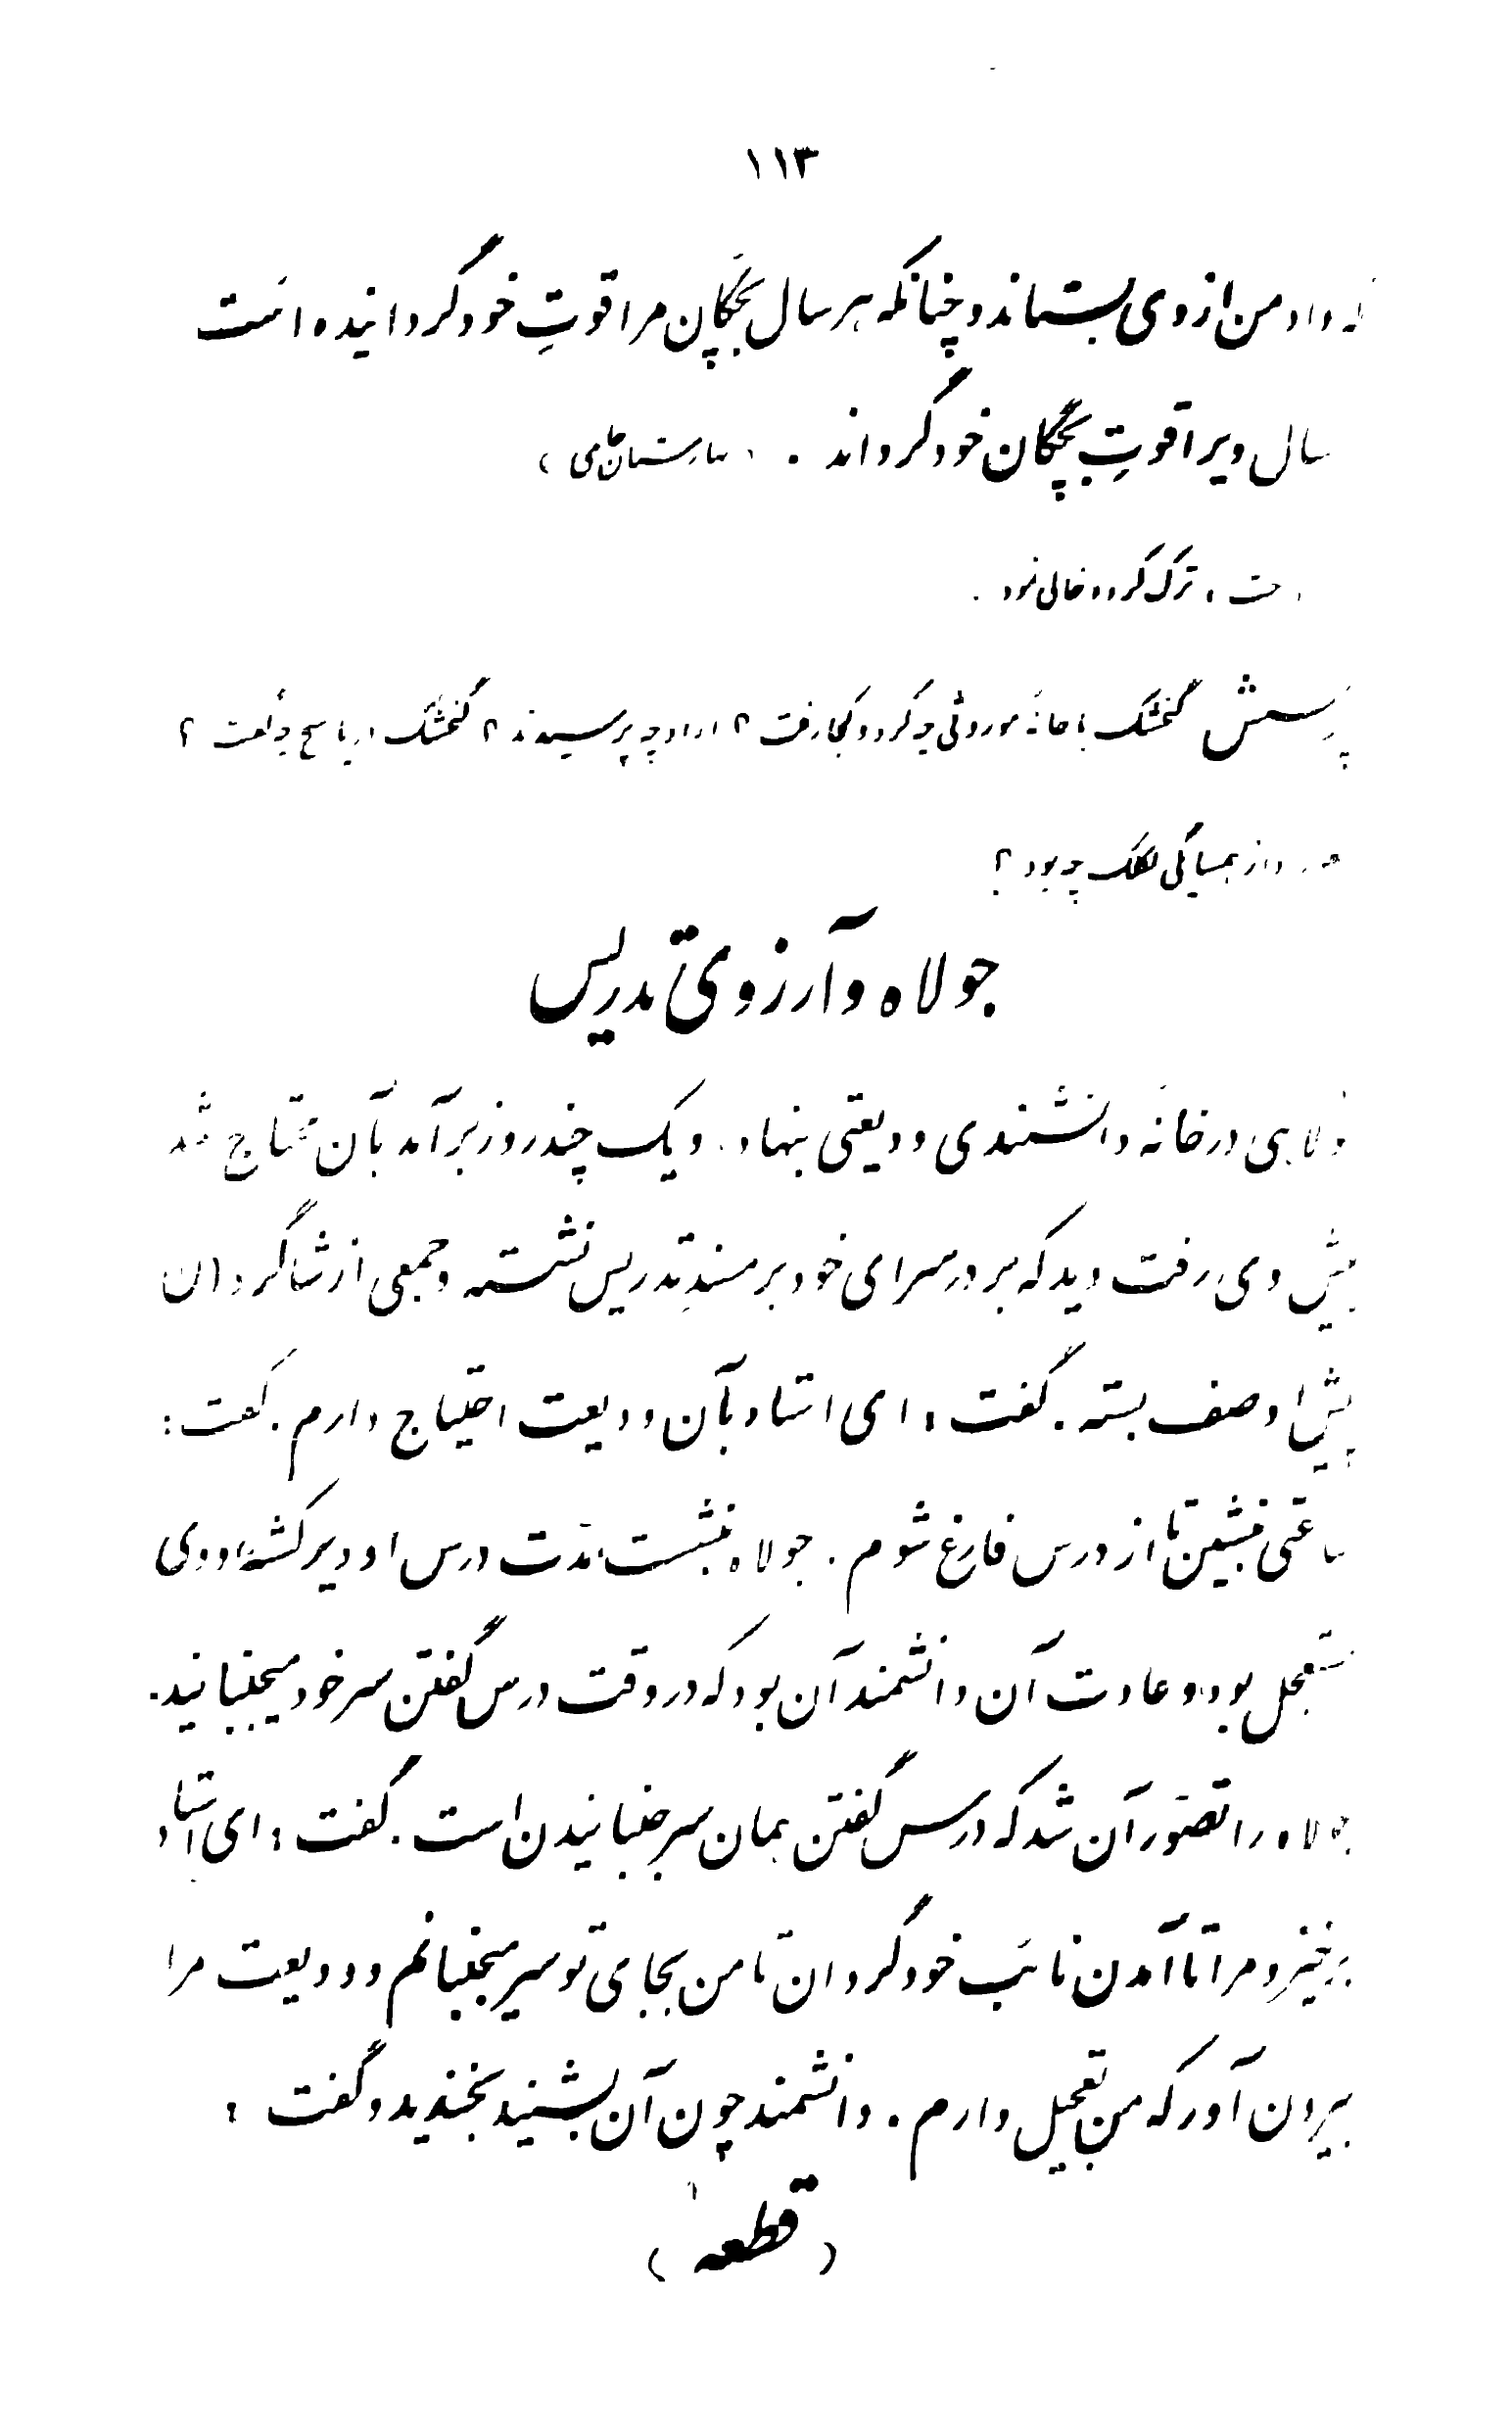 ۱۱۳
که داد من از وی بستاند و چنانکه هر سال بچگان مرا قوتِ خود گردانیده است
سال ویرا قوتِ بچگان خود گرداند . (بهارستان جامی)
ترک کرد و خالی نمود .
پرسش گنجشک با خانهٔ موروثی چه کرد و کجا رفت ؟ از او چه پرسیدند ؟ گنجشک در پاسخ چه گفت ؟
از همسایگی لکلک چه بود ؟
جولاه و آرزوی تدریس
جولاهی در خانهٔ دانشمندی ودیعتی بنهاد. و یک چند روز برآمد بآن محتاج شد
پیش وی رفت دید که بر در سرای خود بر مسندِ تدریس نشسته و جمعی از شاگردان
پیش او صف بسته . گفت : ای استاد بآن ودیعت احتیاج دارم . گفت :
ساعتی بنشین تا از درس فارغ شوم . جولاه بنشست، مدّت درس او دیر کشید و وی
مستعجل بود، و عادت آن دانشمند آن بود که در وقت درس گفتن سر خود میجنبانید.
جولاه را تصوّر آن شد که درس گفتن همان سر جنبانیدن است . گفت : ای استاد
برخیز و مرا تا آمدن نائب خود گردان تا من بجای تو سر میجنبانم و ودیعت مرا
بیرون آور که من تعجیل دارم . دانشمند چون آن بشنید بخندید و گفت :
(قطعه)